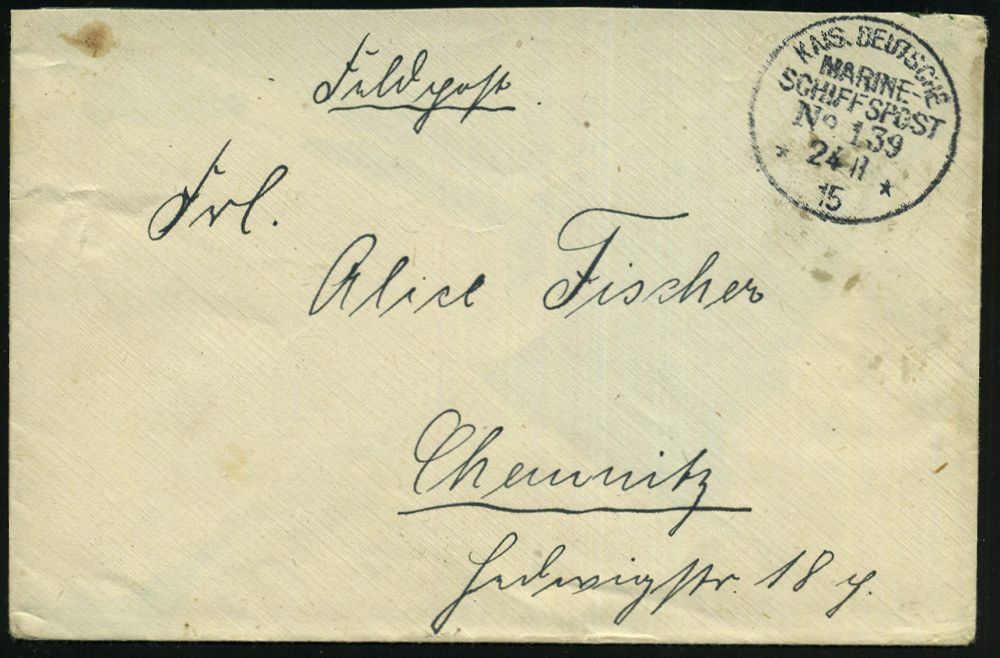 Feldpost.
KAIS. DEUTSCHE
MARINE-
SCHIFFSPOST
No 139
* 24 11 *
15
Frl.
Alice Fischer
Chemnitz
Hedwigstr. 18